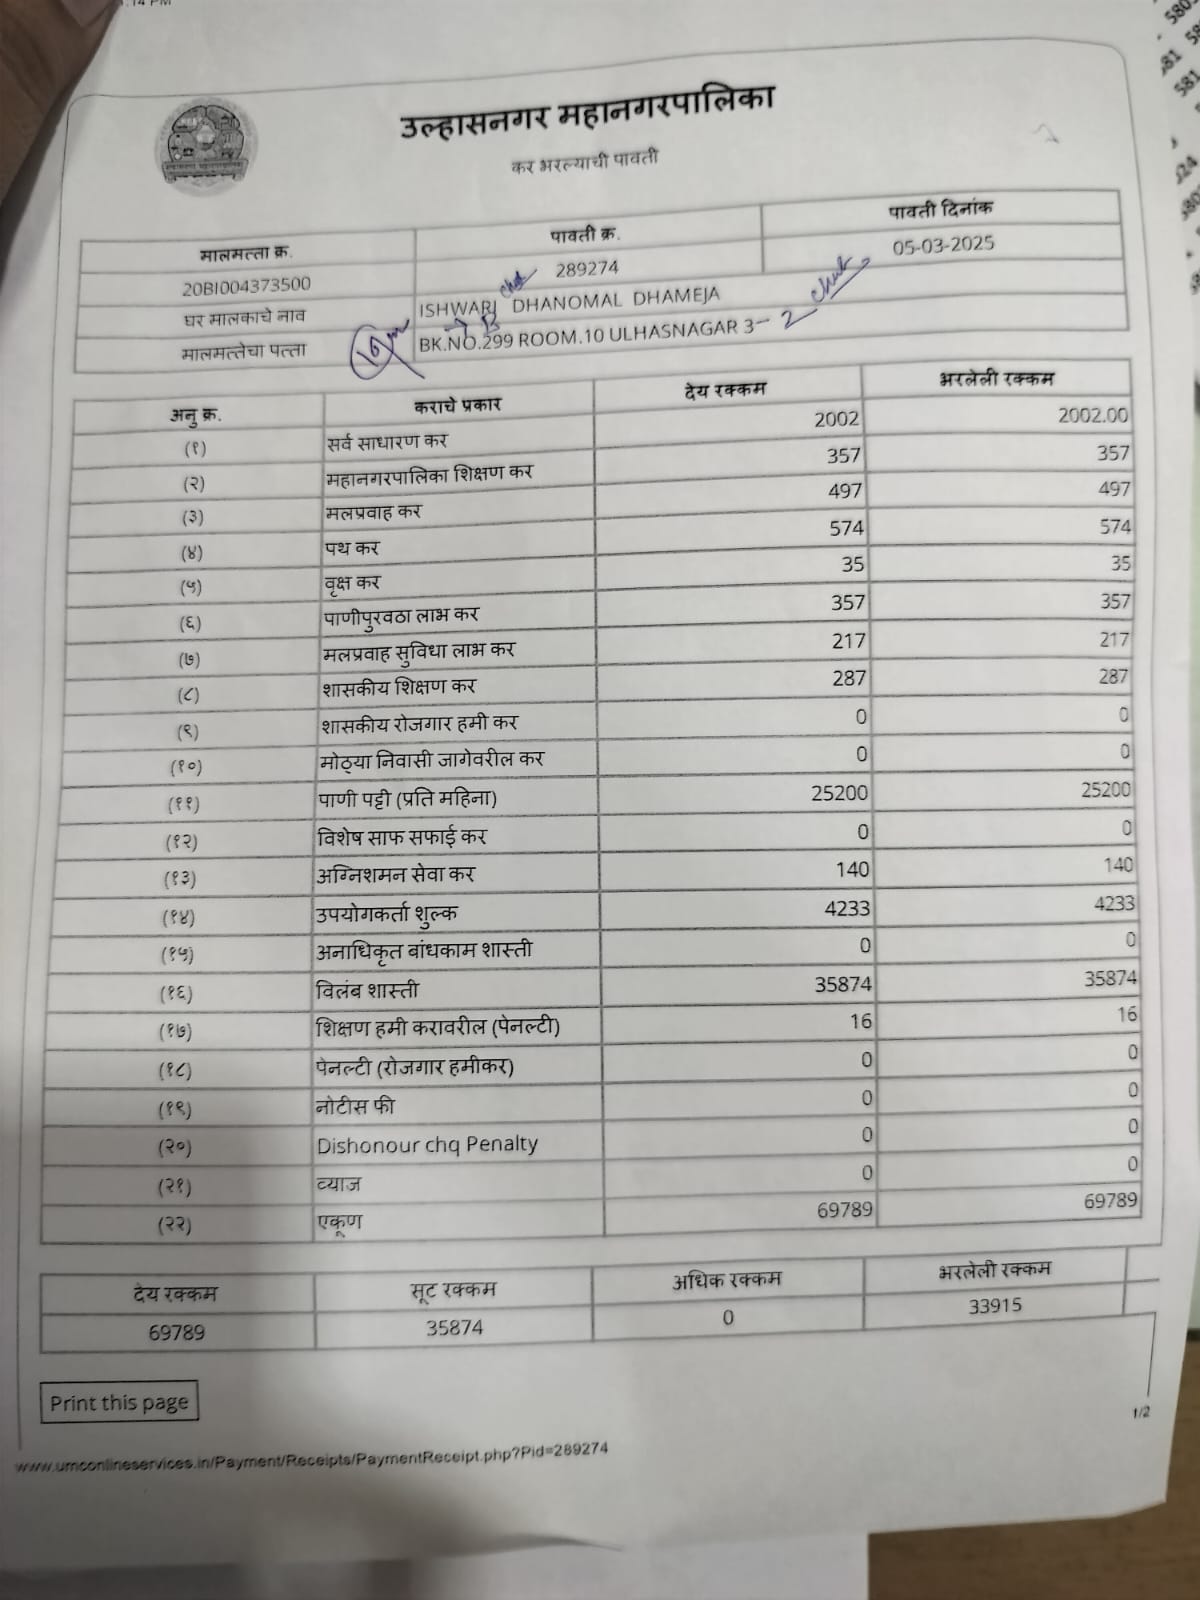 उल्हासनगर महानगरपालिका
कर भरल्याची पावती
मालमत्ता क्र. पावती क्र. पावती दिनांक
20BI004373500 289274 05-03-2025
घर मालकाचे नाव ISHWARI DHANOMAL DHAMEJA
मालमत्तेचा पत्ता BK.NO.299 ROOM.10 ULHASNAGAR 3 - 2
अनु क्र. कराचे प्रकार देय रक्कम भरलेली रक्कम
(१) सर्व साधारण कर 2002 2002.00
(२) महानगरपालिका शिक्षण कर 357 357
(३) मलप्रवाह कर 497 497
(४) पथ कर 574 574
(५) वृक्ष कर 35 35
(६) पाणीपुरवठा लाभ कर 357 357
(७) मलप्रवाह सुविधा लाभ कर 217 217
(८) शासकीय शिक्षण कर 287 287
(९) शासकीय रोजगार हमी कर 0 0
(१०) मोठ्या निवासी जागेवरील कर 0 0
(११) पाणी पट्टी (प्रति महिना) 25200 25200
(१२) विशेष साफ सफाई कर 0 0
(१३) अग्निशमन सेवा कर 140 140
(१४) उपयोगकर्ता शुल्क 4233 4233
(१५) अनाधिकृत बांधकाम शास्ती 0 0
(१६) विलंब शास्ती 35874 35874
(१७) शिक्षण हमी करावरील (पेनल्टी) 16 16
(१८) पेनल्टी (रोजगार हमीकर) 0 0
(१९) नोटीस फी 0 0
(२०) Dishonour chq Penalty 0 0
(२१) व्याज 0 0
(२२) एकूण 69789 69789
देय रक्कम सूट रक्कम अधिक रक्कम भरलेली रक्कम
69789 35874 0 33915
Print this page
1/2
www.umconlineservices.in/Payment/Receipts/PaymentReceipt.php?Pid=289274